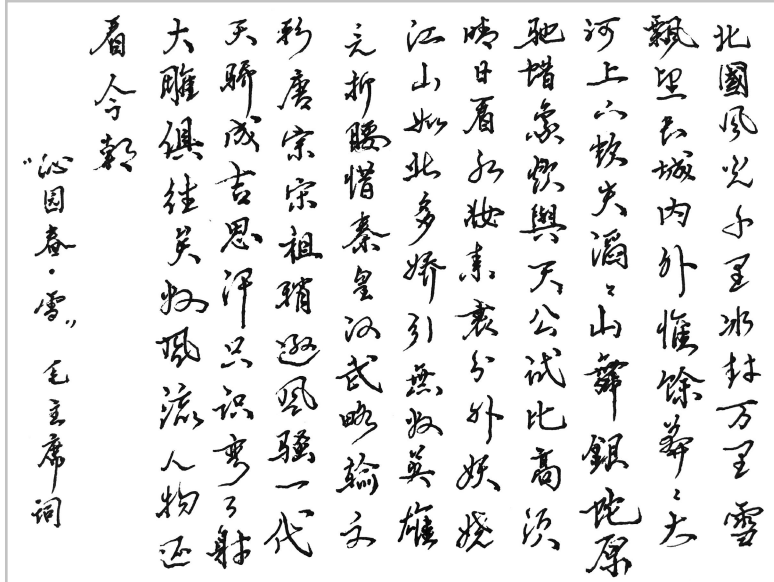 北國風光千里冰封万里雪
飘望长城内外惟馀莽〻大
河上下顿失滔〻山舞銀蛇原
驰蜡象欲與天公试比高须
晴日看红妆素裹分外妖娆
江山如此多娇引無数英雄
竞折腰惜秦皇汉武略输文
彩唐宗宋祖稍逊风骚一代
天骄成吉思汗只识弯弓射
大雕俱往矣数风流人物还
看今朝
“沁园春·雪” 毛主席词